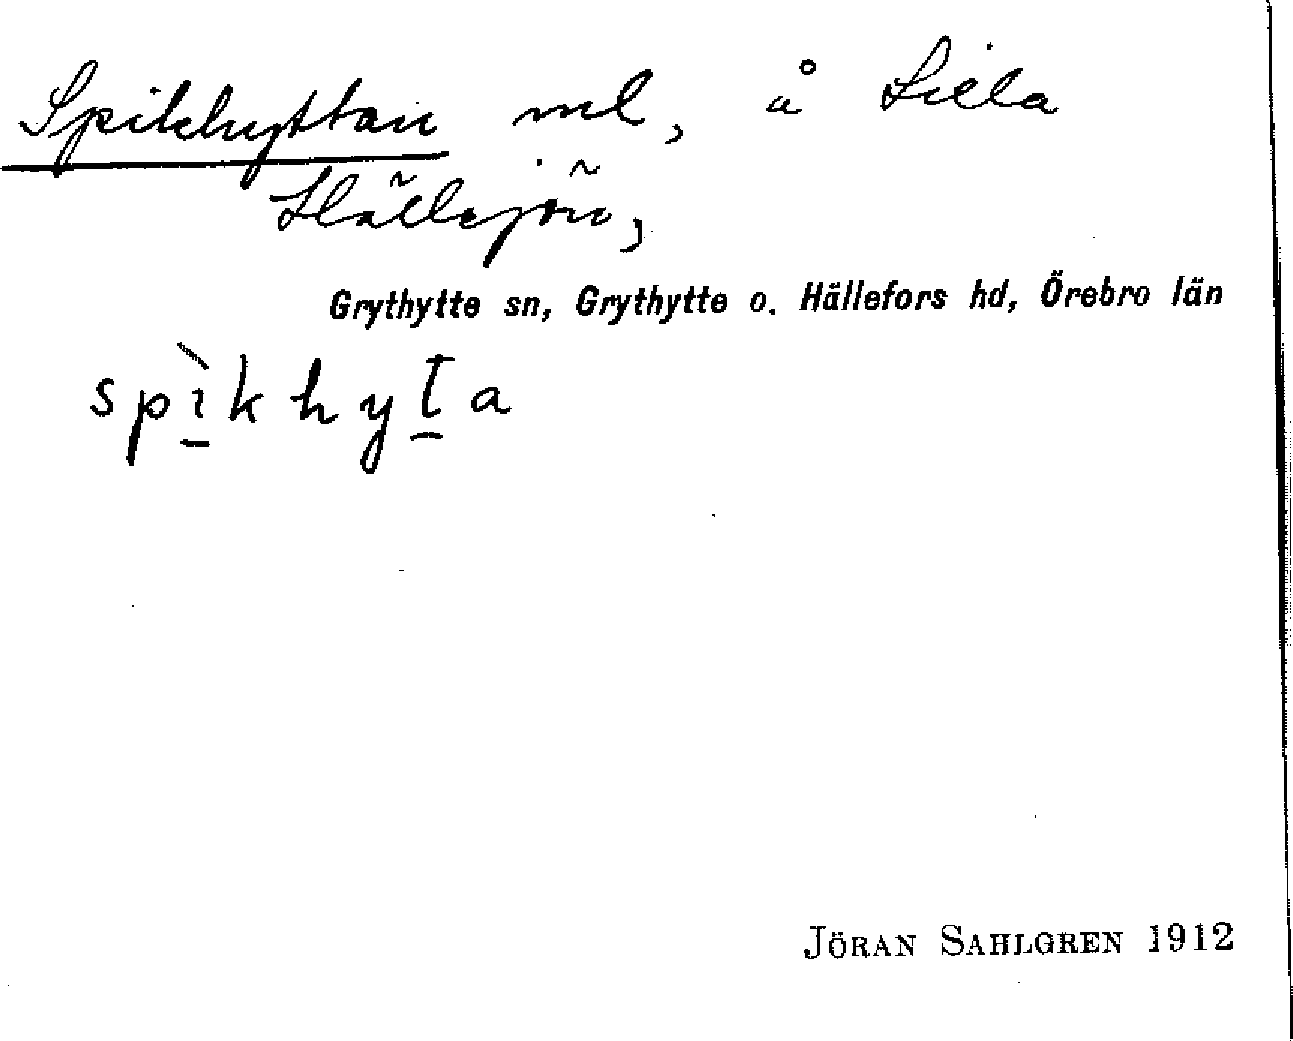 Spikhyttan ml, å Lilla
Hällsjön,
Grythytte sn, Grythytte o. Hällefors hd, Örebro län
spìkhyta
JÖRAN SAHLGREN 1912